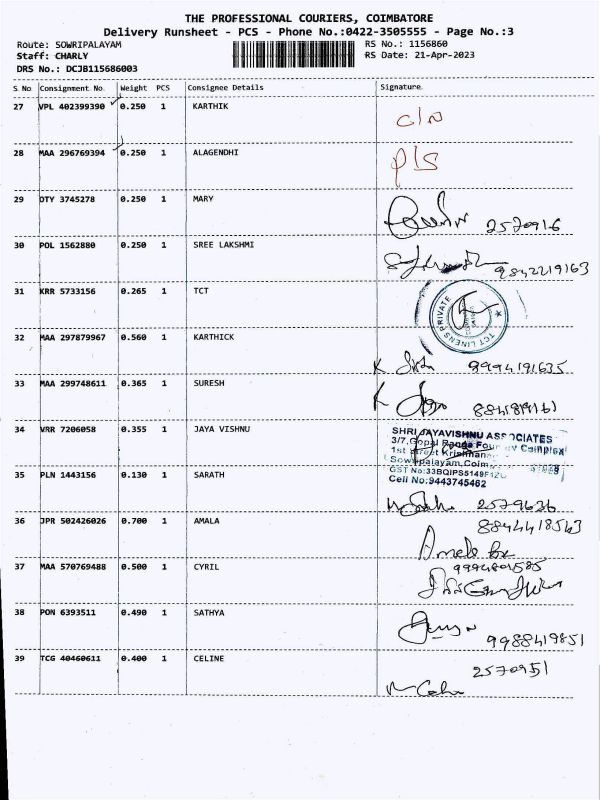 THE PROFESSIONAL COURIERS, COIMBATORE
Delivery Runsheet - PCS - Phone No.:0422-3505555 - Page No.:3
Route: SOWRIPALAYAM RS No.: 1156860
Staff: CHARLY RS Date: 21-Apr-2023
DRS No.: DCJB115686003
S No Consignment No. Weight PCS Consignee Details Signature
27 VPL 402399390 0.250 1 KARTHIK
C/N
28 MAA 296769394 0.250 1 ALAGENDHI
P/S
29 DTY 3745278 0.250 1 MARY
2570916
30 POL 1562880 0.250 1 SREE LAKSHMI
9842219163
31 KRR 5733156 0.265 1 TCT
TCT LINENS PRIVATE
32 MAA 297879967 0.560 1 KARTHICK
9994191635
33 MAA 299748611 0.365 1 SURESH
34 VRR 7206058 0.355 1 JAYA VISHNU
SHRI JAYAVISHNU ASSOCIATES
3/7, Gopal Ranga Foundry Complex
1st Street Krishnan
Sowripalayam, Coim
Cell No:9443745462
35 PLN 1443156 0.130 1 SARATH
2579636
36 JPR 502426026 0.700 1 AMALA
8844418543
37 MAA 570769488 0.500 1 CYRIL
38 PON 6393511 0.490 1 SATHYA
9988419851
39 TCG 40460611 0.400 1 CELINE
2570951